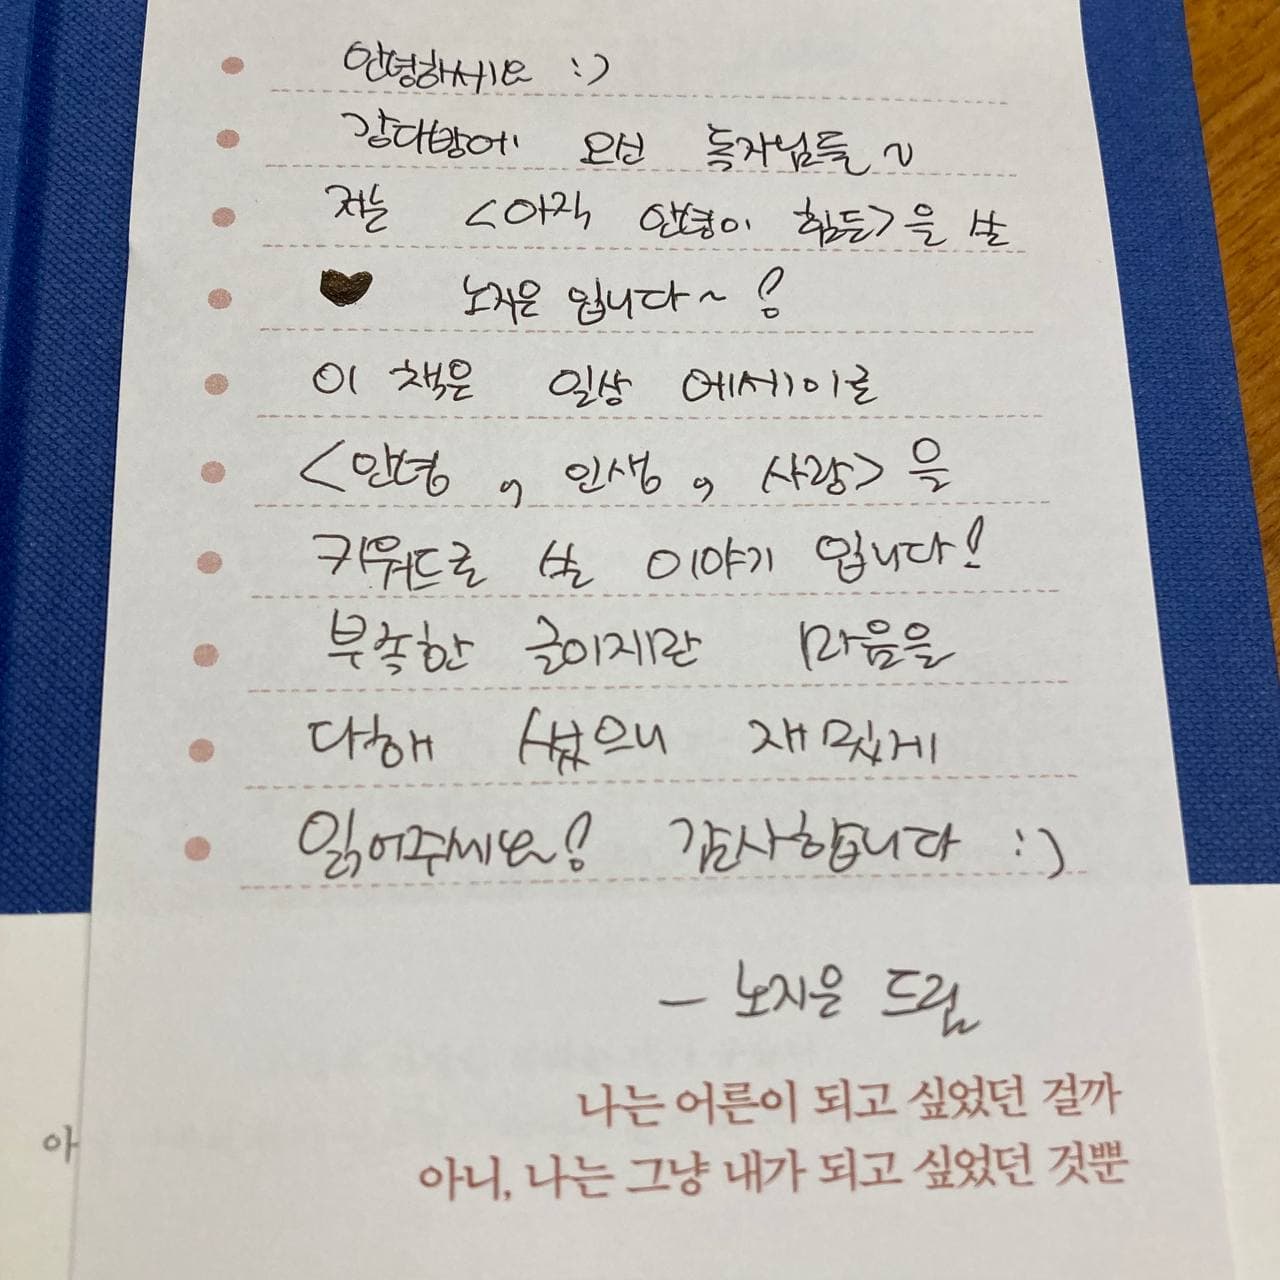 안녕하세요 :)
강다방에 오신 독자님들~
저는 <아직 안녕이 힘든>을 쓴
노지은 입니다~!
이 책은 일상 에세이로
<안녕, 인생, 사랑>을
키워드로 쓴 이야기 입니다!
부족한 글이지만 마음을
다해 썼으니 재밌게
읽어주세요! 감사합니다 :)
- 노지은 드림
나는 어른이 되고 싶었던 걸까
아니, 나는 그냥 내가 되고 싶었던 것뿐
아